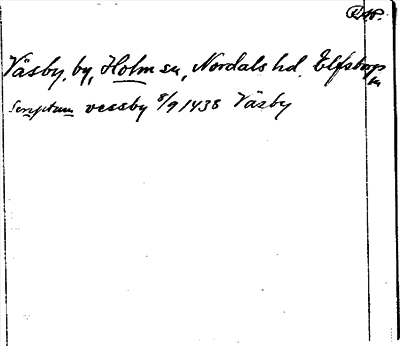 Väsby, by, Holm sn, Nordals hd. Elfsborgs
ln
Scriptum vessby 8/9 1438 Väsby